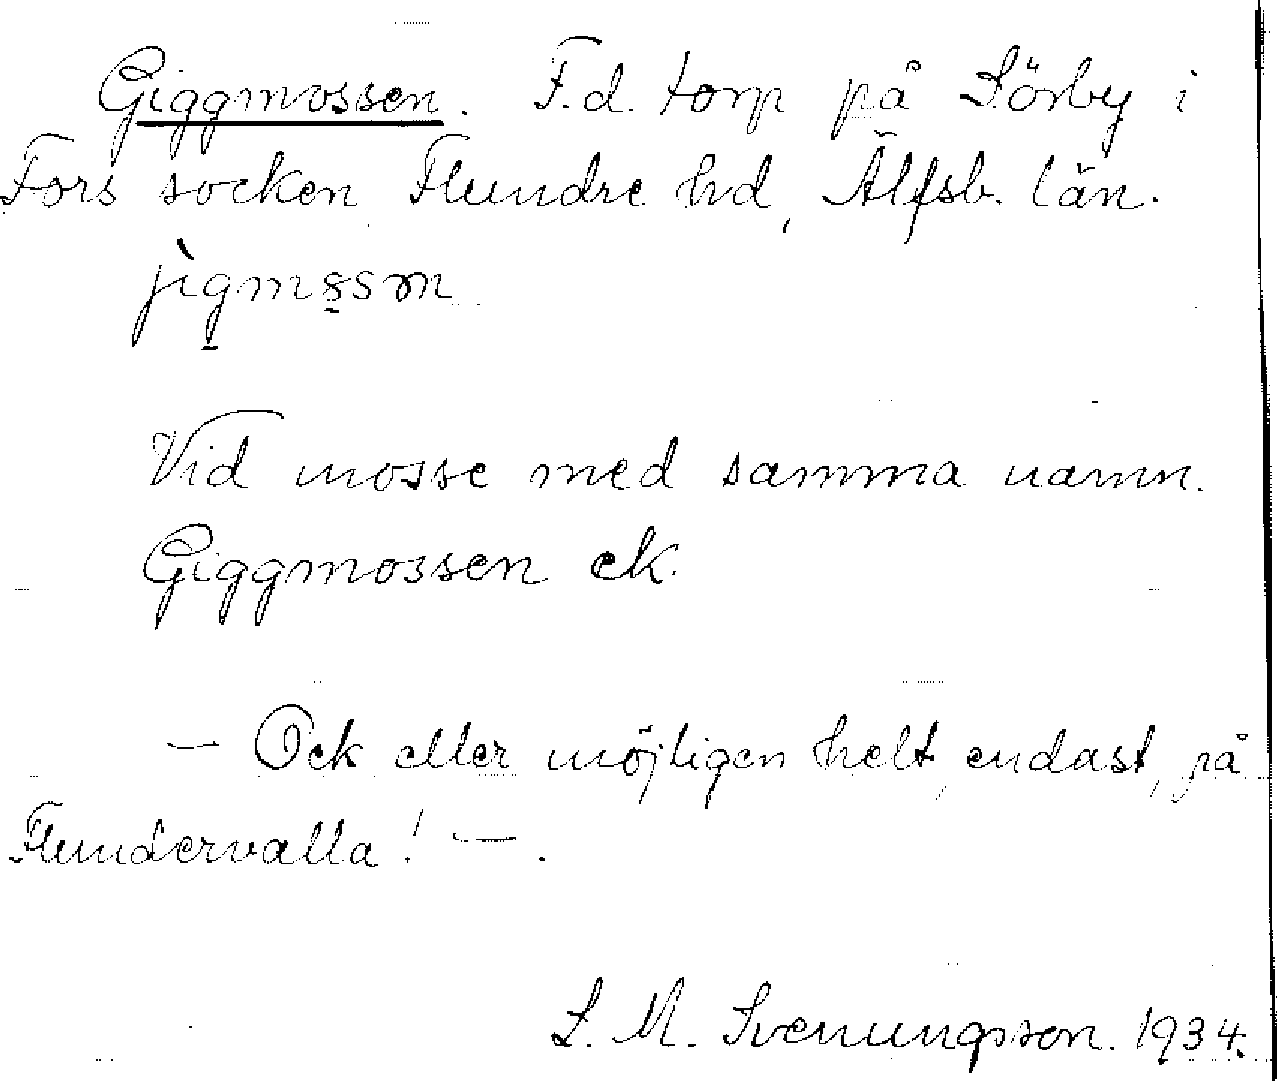 Giggmossen. F.d. torp på Sörby i
Fors socken Flundre hd, Älfsb. län.
Vid mosse med samma namn.
Giggmossen ek.
— Ock eller möjligen helt, endast, på
Flundervalla! —.
S. M. Svenungsson. 1934.